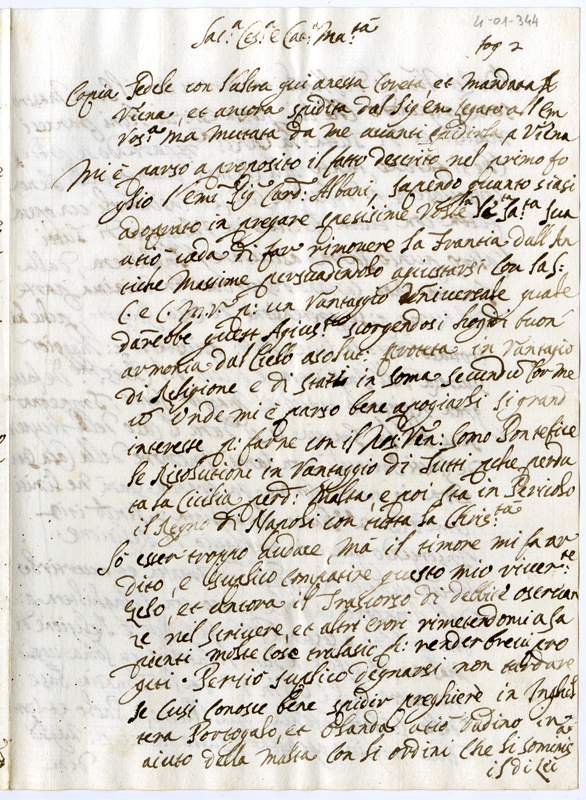 4-01-344
Sac.ª Ces.ª e Cat.ª Ma.tà
fog 2
Copia Fedele con l'altra qui anessa Coreta, et Mandata p
Viena, et ancora spidita dal Sig em Legato a l'em
Vos.ª ma mutata da me avanti p Viena
Mi è parso a proposito il fatto descrito nel primo fo
glio l'em: Sig Card: Albani, sapendo quanto si sia
adoprato in pregare spesisime Volte la Sa.tà Sua
atiò vada di far rimovere la Francia dall'An
tiche Masime persuadendolo agiustarsi con la S:
C. e C. M. V. p: un Vantaggio Universale quale
darebbe quest Agius.to scorgendosi hoggidi buon
armonia dal Cielo asolut: proteta in Vantagio
di Religione e di stati in soma secundu Cor me
ió Unde mi è parso bene apogiarsi si grand
interesse p: farne con il Nos: Ven: Como Pontefice
le Risolutioni in Vantaggio di Tutti, che perdu
ta la Cicilia perd: Malta, e poi sta in Pericolo
il Regno di Napoli con tutta la Chris.tà
Só esser troppo Audace, ma il timore mi fa ar
dito, e suplico compatire questo mio river.te
Zelo, et ancora il Trascorso di debite oservan
ze nel scrivere, et altri erori rimetendomi a sa
pienti, molte cose tralasio p: render breve pro
geti. Perciò suplico degnarsi non tardare
se cusi conosce bene spidir preghiere in Inghil
tera Portogalo, et Olanda atió Vadino in
aiuto della Malta con li ordini che si sominis